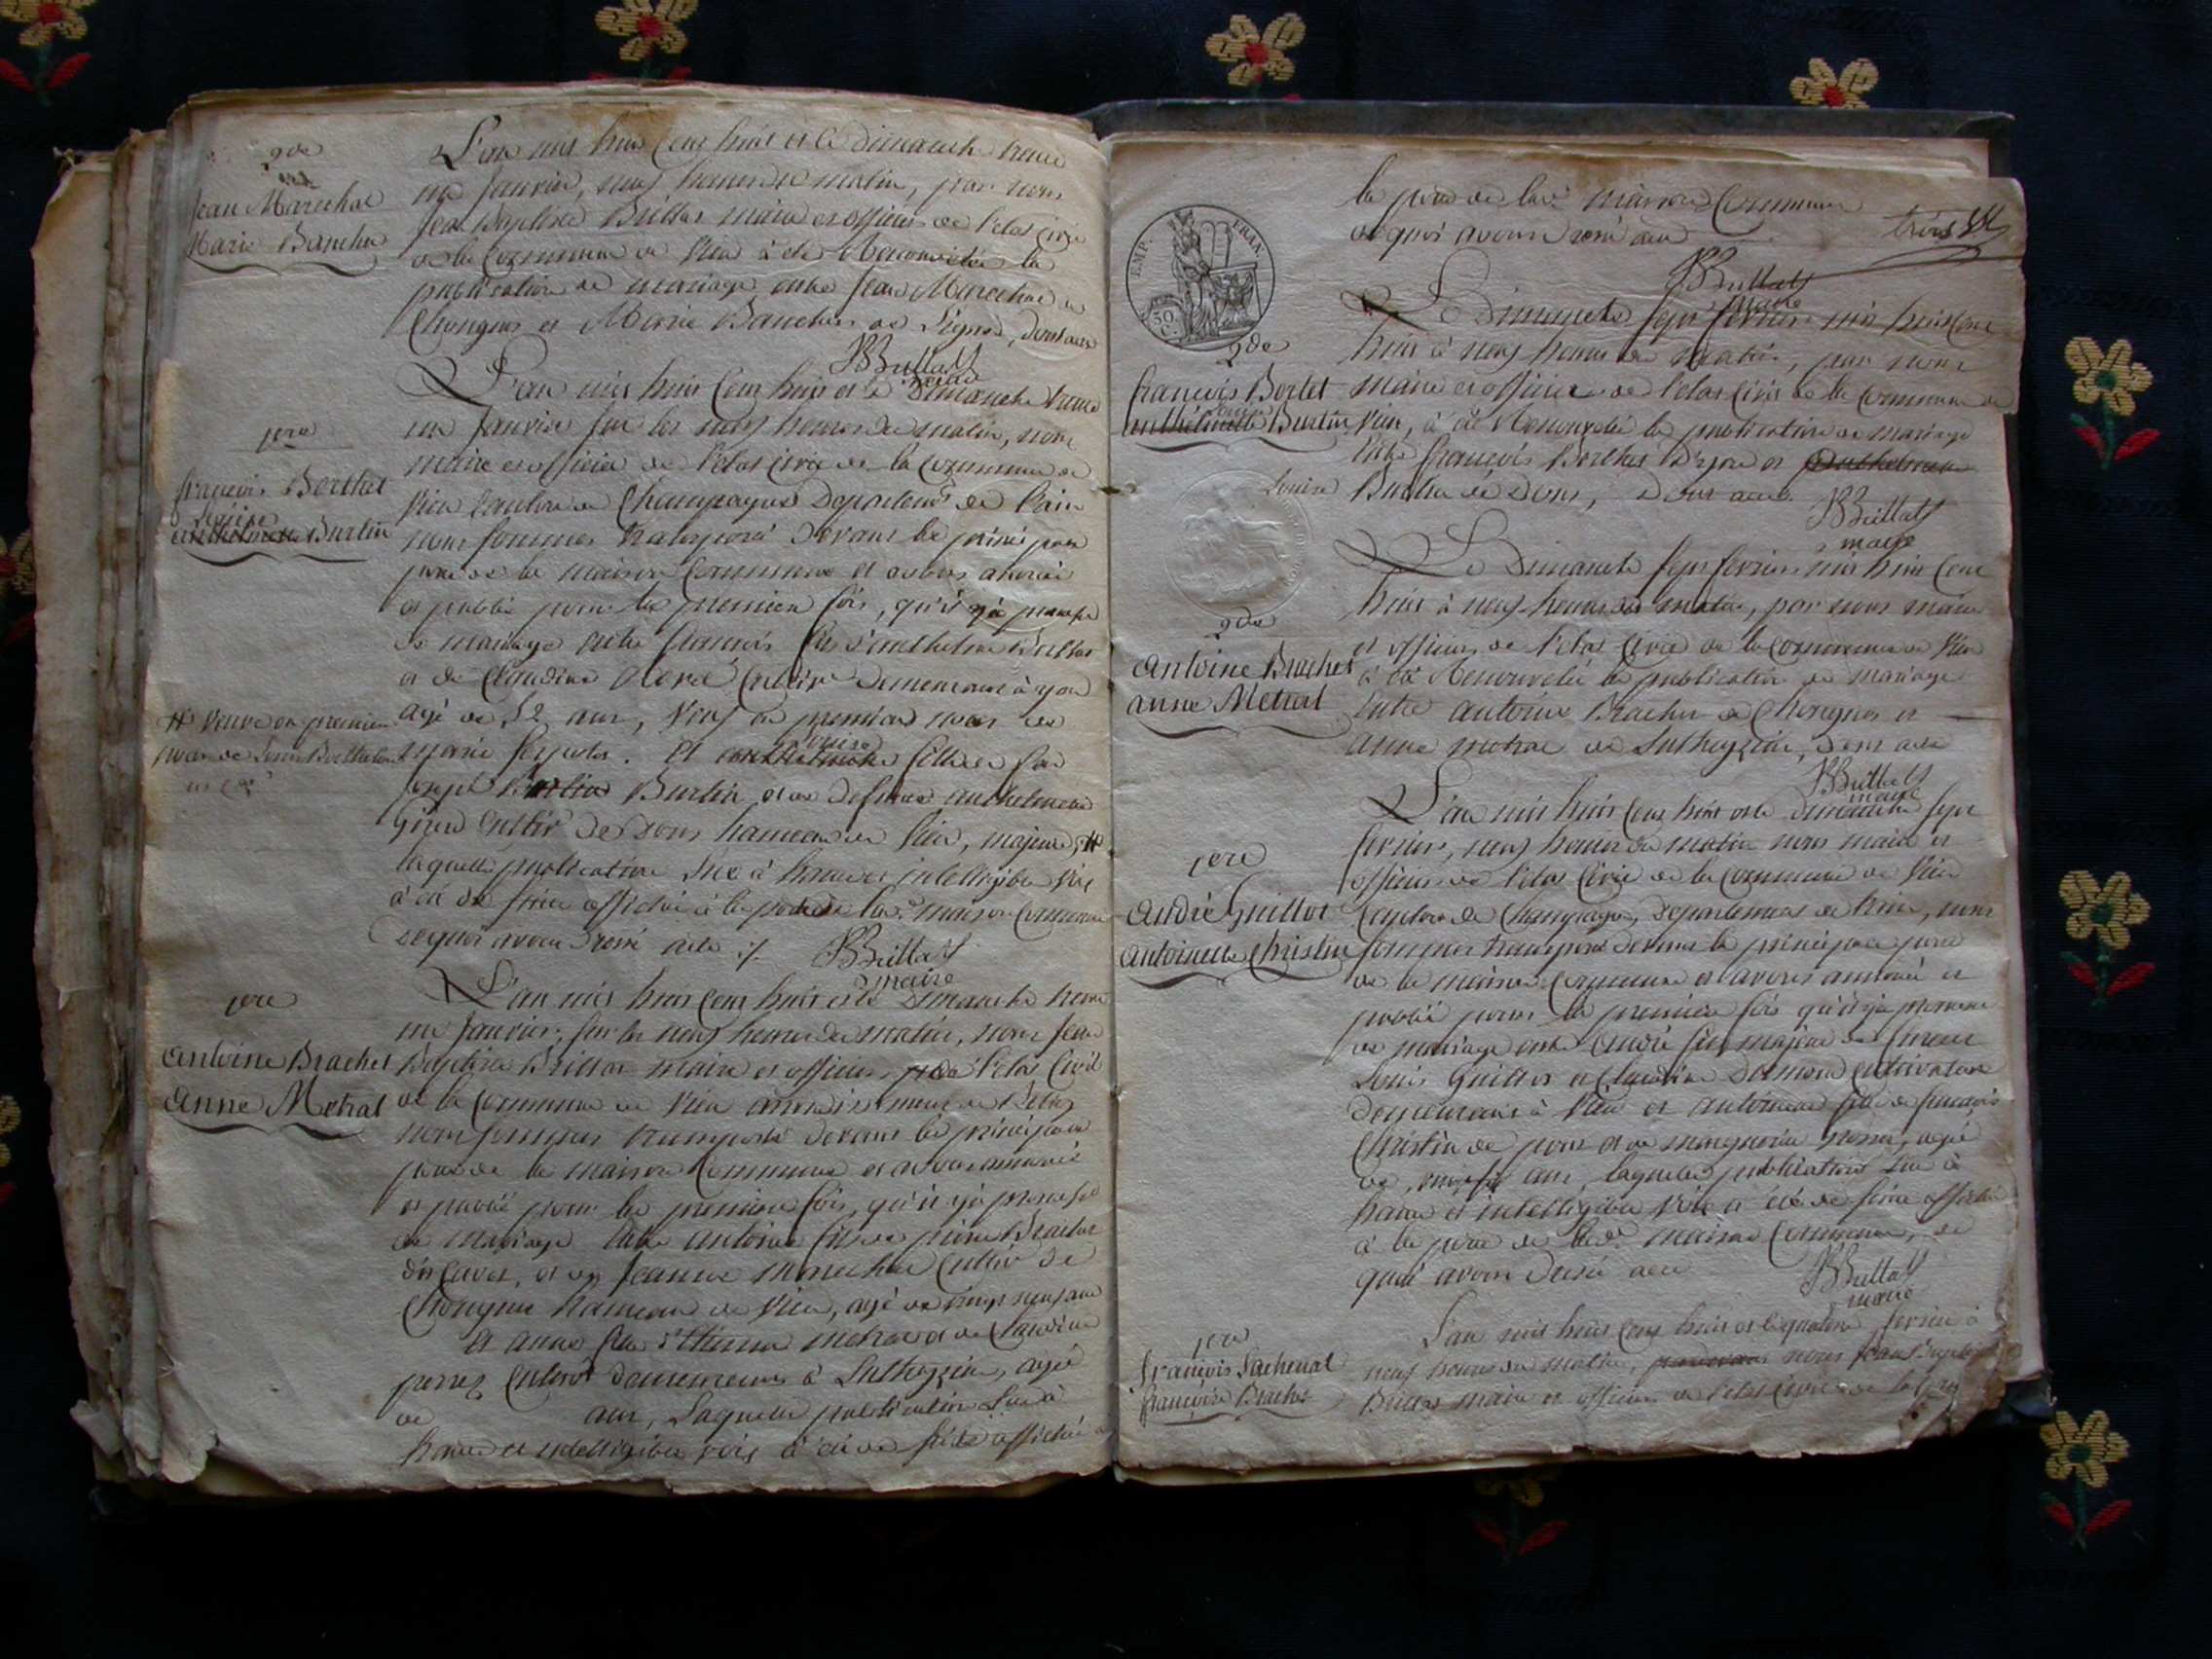 2de
Jean Marechal
Marie Banchet
L'an mil huit cent huit et le dimanche trente
un janvier, neuf heures du matin, par nous
Jean Baptiste Brillat maire et officier de l'etat civil
de la commune de Vieu à été renouvelée la
publication de mariage entre Jean Marechal de
Chongnes et Marie Banchet de, dont acte
JBBrillat
maire
1ere
françois Berthet
Louise
anthelmette Burtin
L'an mil huit cent huit et le dimanche trente
un janvier sur les neuf heures du matin, nous
maire et officier de l'etat civil de la commune de
Vieu canton de Champagne Departemt de l'ain
nous sommes transporté devant la principale
porte de la maison commune et avons annoncé
et publié pour la premiere fois, qu'il y a promesse
de mariage entre françois fils d'anthelme Berthet
et de Claudine cultivr demeurant à yon
agé de 52 ans, veuf en premieres noces de
marie. Et anthelmette Louise fille de feu
joseph Burtin et de defunte anthelmette
cultivr de dons hameau de Vieu, majeure, #
# veuve en premiere
noces de
laquelle publication lue à haute et intelligible voix
à été de suite affichée à la porte de lade maison commune
de quoi avons dressé acte ./.
JBBrillat
maire
1ere
Antoine Brachet
Anne Metral
L'an mil huit cent huit et le dimanche trente
un janvier, sur les neuf heures du matin, nous Jean
Baptiste Brillat maire et officier de l'etat civil
de la commune de Vieu arrondissement de Belley
nous sommes transporté devant la principale
porte de la maison commune et avons annoncé
et publié pour la premiere fois, qu'il y a promesse
de mariage entre antoine fils de pierre Brachet
, et de Jeanne Marechal cultivr de
Chongnes hameau de Vieu, agé de vingt neuf ans
Et anne fille d'Etienne metral et de Claudine
perret cultivr demeurant à Sutheyzieu, agée
de ans, Laquelle publication lue à
haute et intelligible voix à été de suite affichée à
la porte de lade maison commune
de quoi avons dressé acte
trois
JBBrillat
maire
EMP. FRAN.
50 C.
2de
françois Bertet
Louise
anthelmette Burtin
Le Dimanche sept fevrier mil huit cent
huit à neuf heures du matin, par nous
maire et officier de l'etat civil de la commune de
Vieu, à été renouvelée la publication de mariage
Entre françois Berthet d'yon et anthelmette
Louise Burtin de dons, dont acte.
JBBrillat
maire
2de
Antoine Brachet
anne Metral
Le Dimanche sept fevrier mil huit cent
huit à neuf heures du matin, par nous maire
et officier de l'etat civil de la commune de Vieu
à été renouvelée la publication de mariage
Entre antoine Brachet de Chongnes et
anne metral de Sutheyzieu, dont acte
JBBrillat
maire
1ere
André Guillot
Antoinette Christin
L'an mil huit cent huit et le dimanche sept
fevrier, neuf heures du matin nous maire et
officier de l'etat civil de la commune de Vieu
Canton de Champagne, departement de l'ain, nous
sommes transporté devant la principale porte
de la maison commune et avons annoncé et
publié pour la premiere fois qu'il y a promesse
de mariage entre André fils majeur de
Louis Guillot et Claudine cultivateur
demeurant à Vieu et antoinette fille de françois
Christin de et de marguerite, agée
de ans, laquelle publication lue à
haute et intelligible voix a été de suite affichée
à la porte de lade maison commune, de
quoi avons dressé acte
JBBrillat
maire
1ere
françois Lachenal
françoise Brachet
L'an mil huit cent huit et le quatorze fevrier à
neuf heures du matin, nous Jean Baptiste
Brillat maire et officier de l'etat civil de la